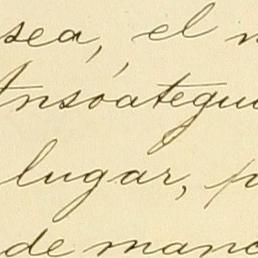 sea, el
Ansóategui
lugar, p
de manc